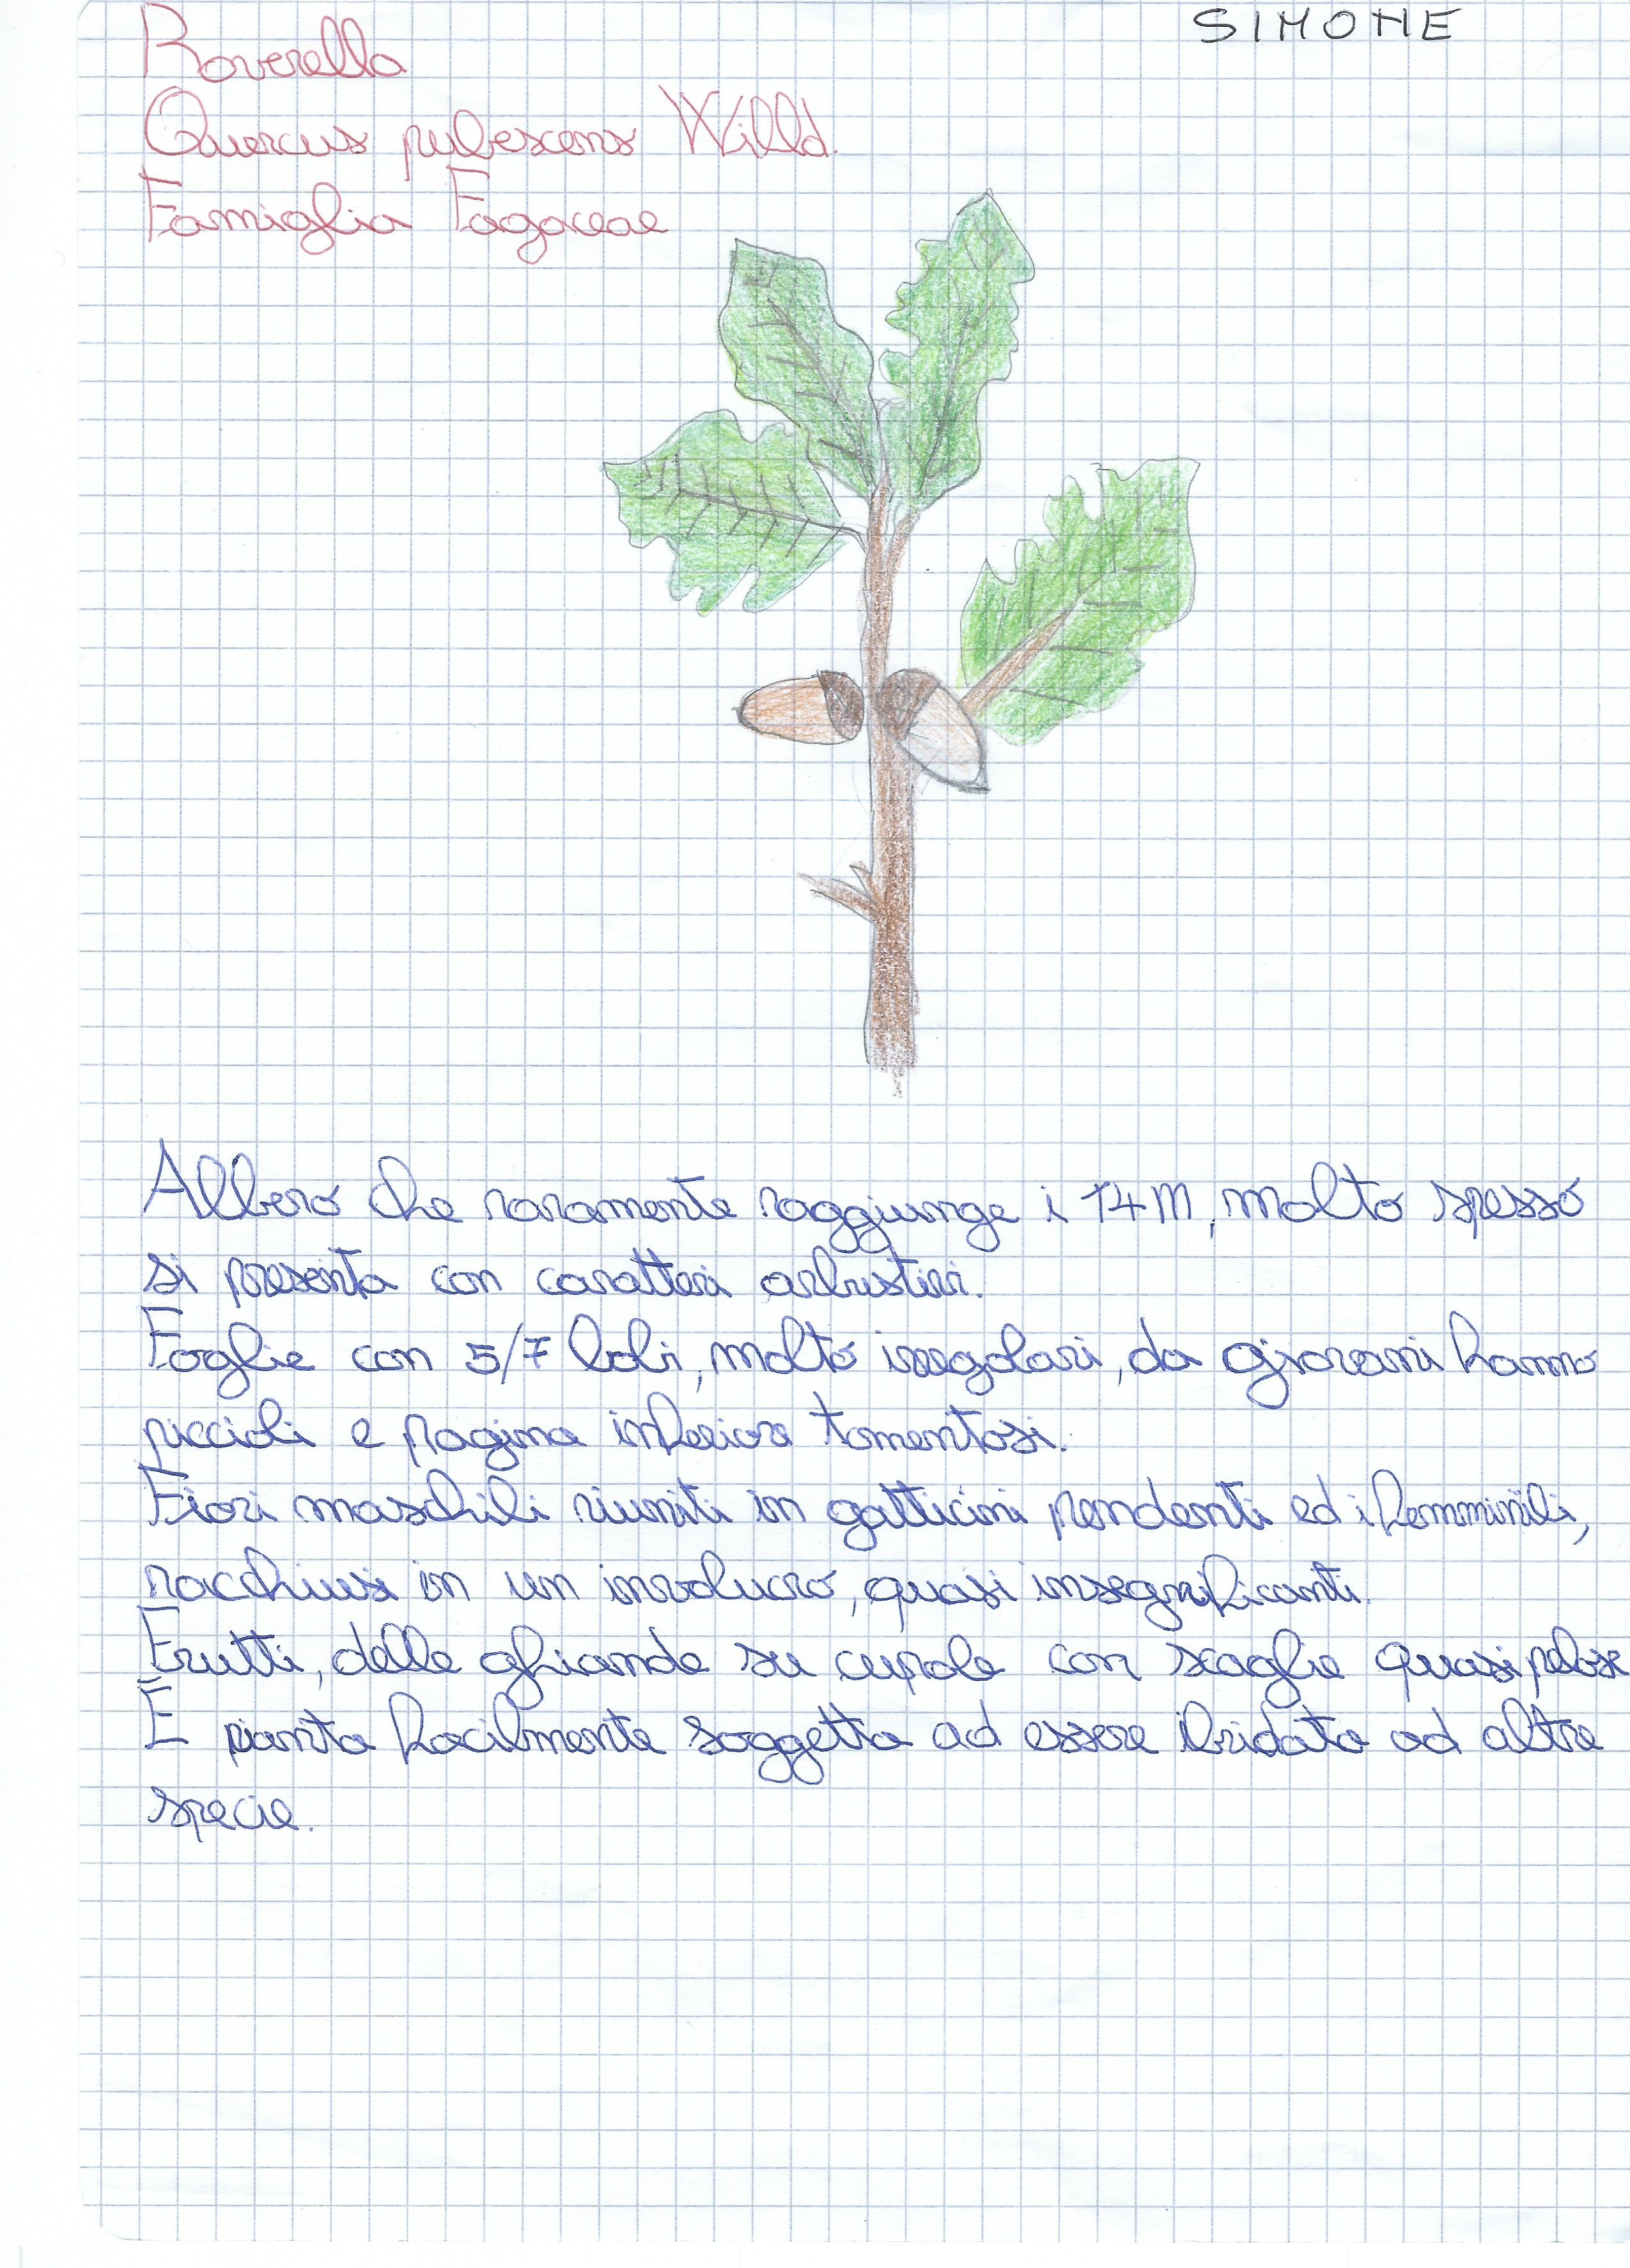 SIMONE
Roverella
Quercus pubescens Willd.
Famiglia Fagaceae
Albero che raramente raggiunge i 14 m, molto spesso
si presenta con caratteri arbustivi.
Foglie con 5/7 lobi, molto irregolari, da giovani hanno
piccioli e pagina inferiore tomentosi.
Fiori maschili riuniti in gatticini pendenti ed i femminili,
racchiusi in un involucro, quasi insegnificanti.
Frutti, delle ghiande su cupole con scaglie quasi pelose
È pianta facilmente soggetta ad essere ibridata ad altre
specie.